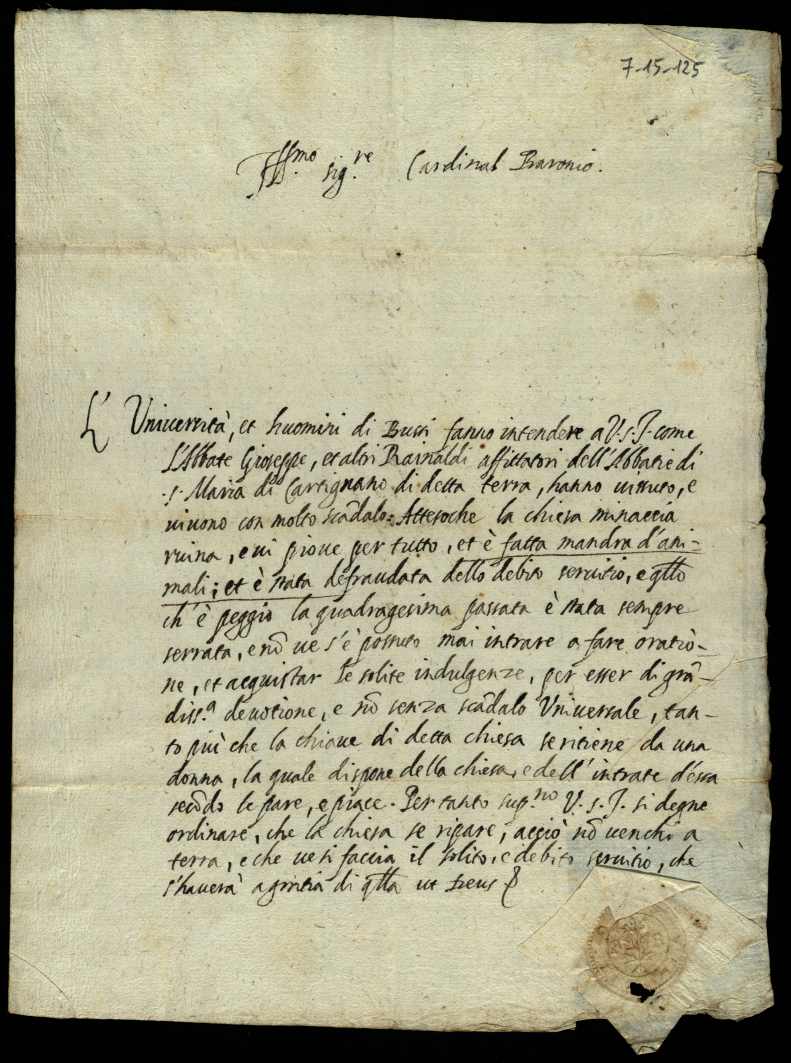 7-15-125
Ill.mo sig.re Cardinal Baronio.
L' Università, et huomini di Bussi fanno intendere a V.S.I. come
l'Abbate Gioseppe, et altri Rainaldi affittatori dell'Abbatie di
S. Maria di Cartignano di detta terra, hanno vissuto, e
vivono con molto scãdalo: Attesoche la chiesa minaccia
ruina, e vi piove per tutto, et è fatta mandra d'ani-
mali; et è stata defraudata dello debito servitio, e q̃llo
ch'è peggio la quadragesima passata è stata sempre
serrata, e nõ ve s'è possuto mai intrare a fare oratio-
ne, et acquistar le solite indulgenze, per esser di grã-
diss.a devotione, e nõ senza scãdalo Universale, tan-
to più che la chiave di detta chiesa se ritiene da una
donna, la quale dispone della chiesa, e dell'intrate d'essa
secõdo le pare, e piace. Per tanto sup.no V.S.I. si degne
ordinare, che la chiesa se ripare, acciò nõ venghi a
terra, e che vesi faccia il solito, e debito servitio, che
s'haverà a gratia di q̃lla ut Deus